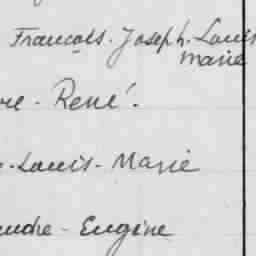 François-Joseph-Louis
Marie
René.
-Louis-Marie
-Eugène